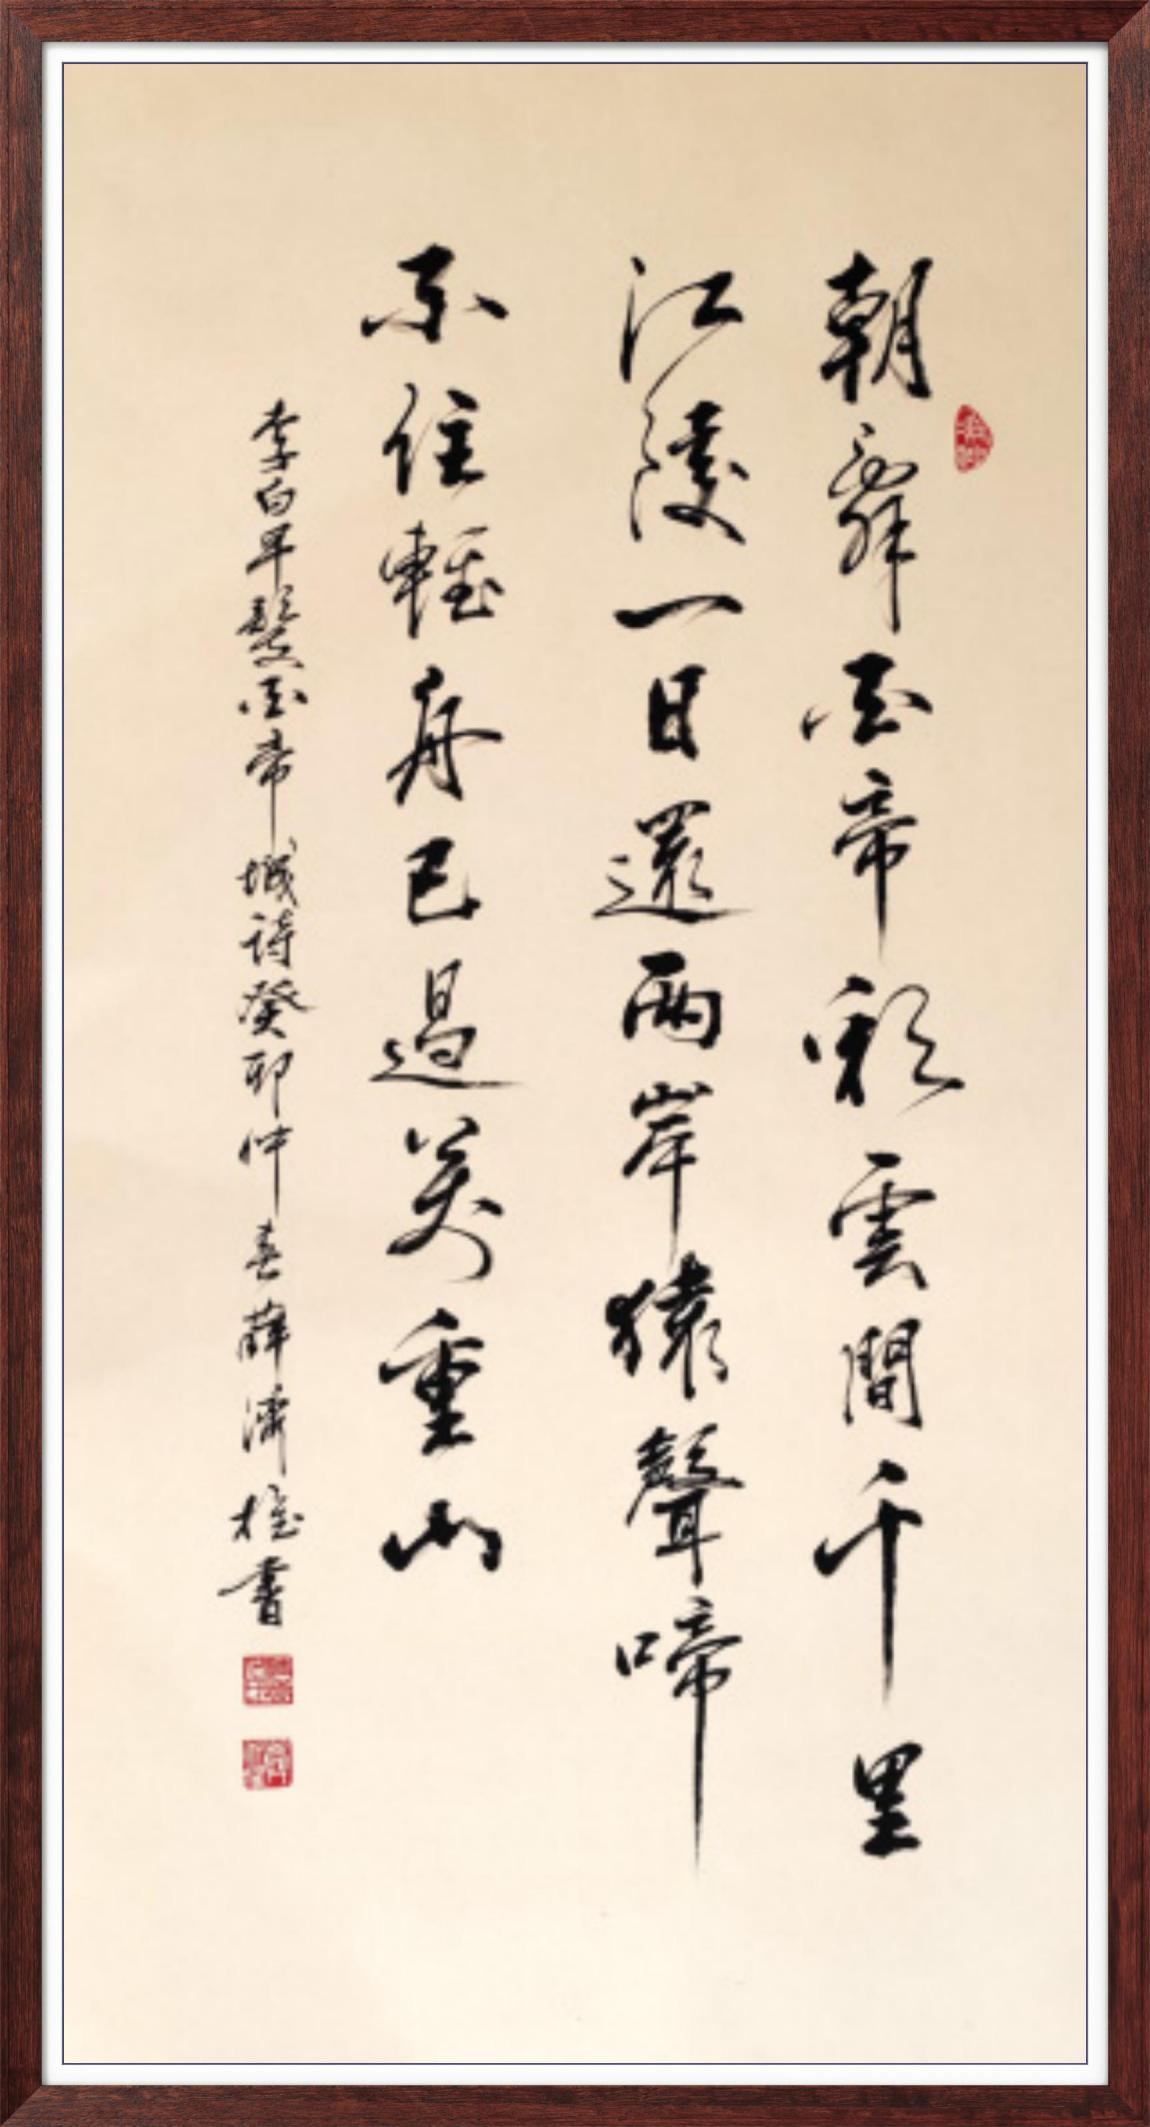 朝辭白帝彩雲間千里
江陵一日還兩岸猿聲啼
不住輕舟已過萬重山
李白早發白帝城詩癸卯仲春薛書